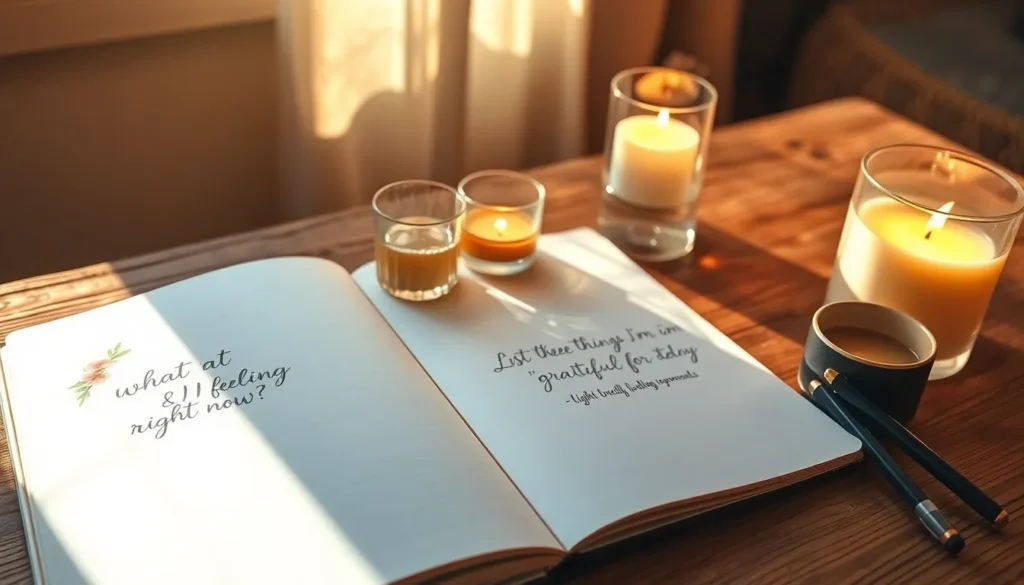 what at
& I I feeling
right now?
List thee things I'm im
"gratiful for tday
- Light